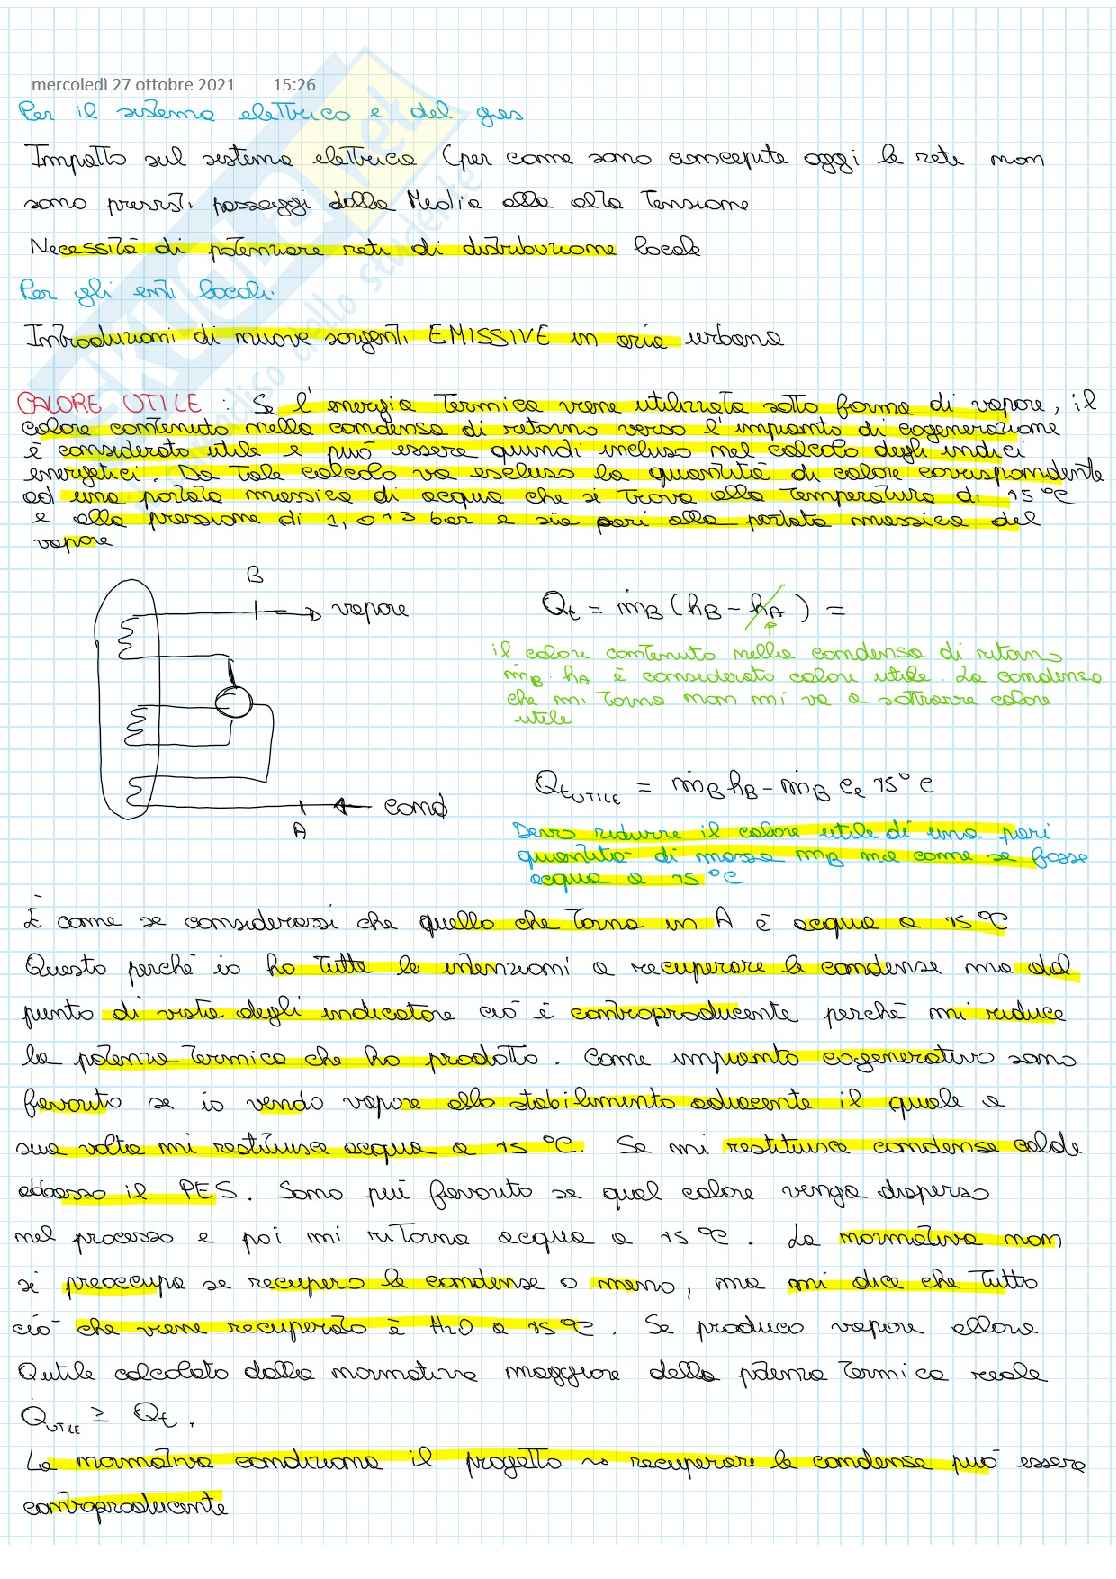 mercoledì 27 ottobre 2021 15:26
Per il sistema elettrico e del gas
Impatto sul sistema elettrico (per come sono concepite oggi le reti non
sono previsti passaggi dalla Media alla alta Tensione
Necessità di potenziare reti di distribuzione locale
Per gli enti locali:
Introduzioni di nuove sorgenti EMISSIVE in aria urbana
CALORE UTILE : Se l'energia Termica viene utilizzata sotto forma di vapore, il
calore contenuto nella condensa di ritorno verso l'impianto di cogenerazione
è considerato utile e può essere quindi incluso nel calcolo degli indici
energetici. Da Tale calcolo va escluso la quantità di calore corrispondente
ad una portata massica di acqua che si Trova alla Temperatura di 15°C
e alla pressione di 1,013 bar e sia pari alla portata massica del
vapore
B
vapore
Qt = ṁB (hB - hA) =
il calore contenuto nella condensa di ritorno
ṁB · hA è considerato calore utile. La condensa
che mi Torna non mi va a sottrarre calore
utile
QtUTILE = ṁB hB - ṁB ce 15°C
cond
A
Devo ridurre il calore utile di una pari
quantità di massa mB ma come se fosse
acqua a 15°C
È come se considerassi che quello che Torna in A è acqua a 15°C
Questo perché io ho Tutte le intenzioni a recuperare le condense ma dal
punto di vista degli indicatore ciò è controproducente perché mi riduce
la potenza Termica che ho prodotto. Come impianto cogenerativo sono
favorito se io vendo vapore allo stabilimento adiacente il quale a
sua volta mi restituisce acqua a 15°C. Se mi restituisce condense calde
abbasso il PES. Sono più favorito se quel calore venga disperso
nel processo e poi mi ritorna acqua a 15°C. La normativa non
si preoccupa se recupero le condense o meno, ma mi dice che Tutto
ciò che viene recuperato è H2O a 15°C. Se produco vapore allora
Qutile calcolato dalla normativa maggiore della potenza Termica reale
Q̇UTILE ≥ Q̇t.
La normativa condiziona il progetto → recuperare le condense può essere
controproducente